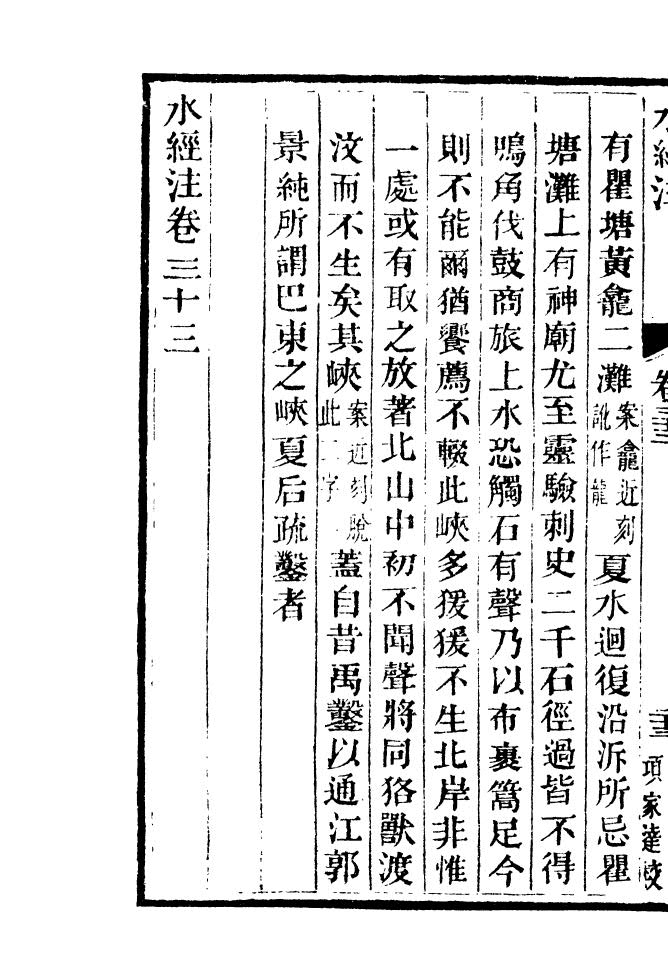 水經注
卷
項家達校
有瞿塘黃龕二灘案龕近刻訛作龍夏水迴復沿泝所忌瞿
塘灘上有神廟尤至靈驗刺史二千石徑過皆不得
鳴角伐鼓商旅上水恐觸石有聲乃以布裹篙足今
則不能爾猶饗薦不輟此峽多猨猨不生北岸非惟
一處或有取之放著北山中初不聞聲將同狢獸渡
汶而不生矣其峽案近刻脫此二字蓋自昔禹鑿以通江郭
景純所謂巴東之峽夏后疏鑿者
水經注卷三十三